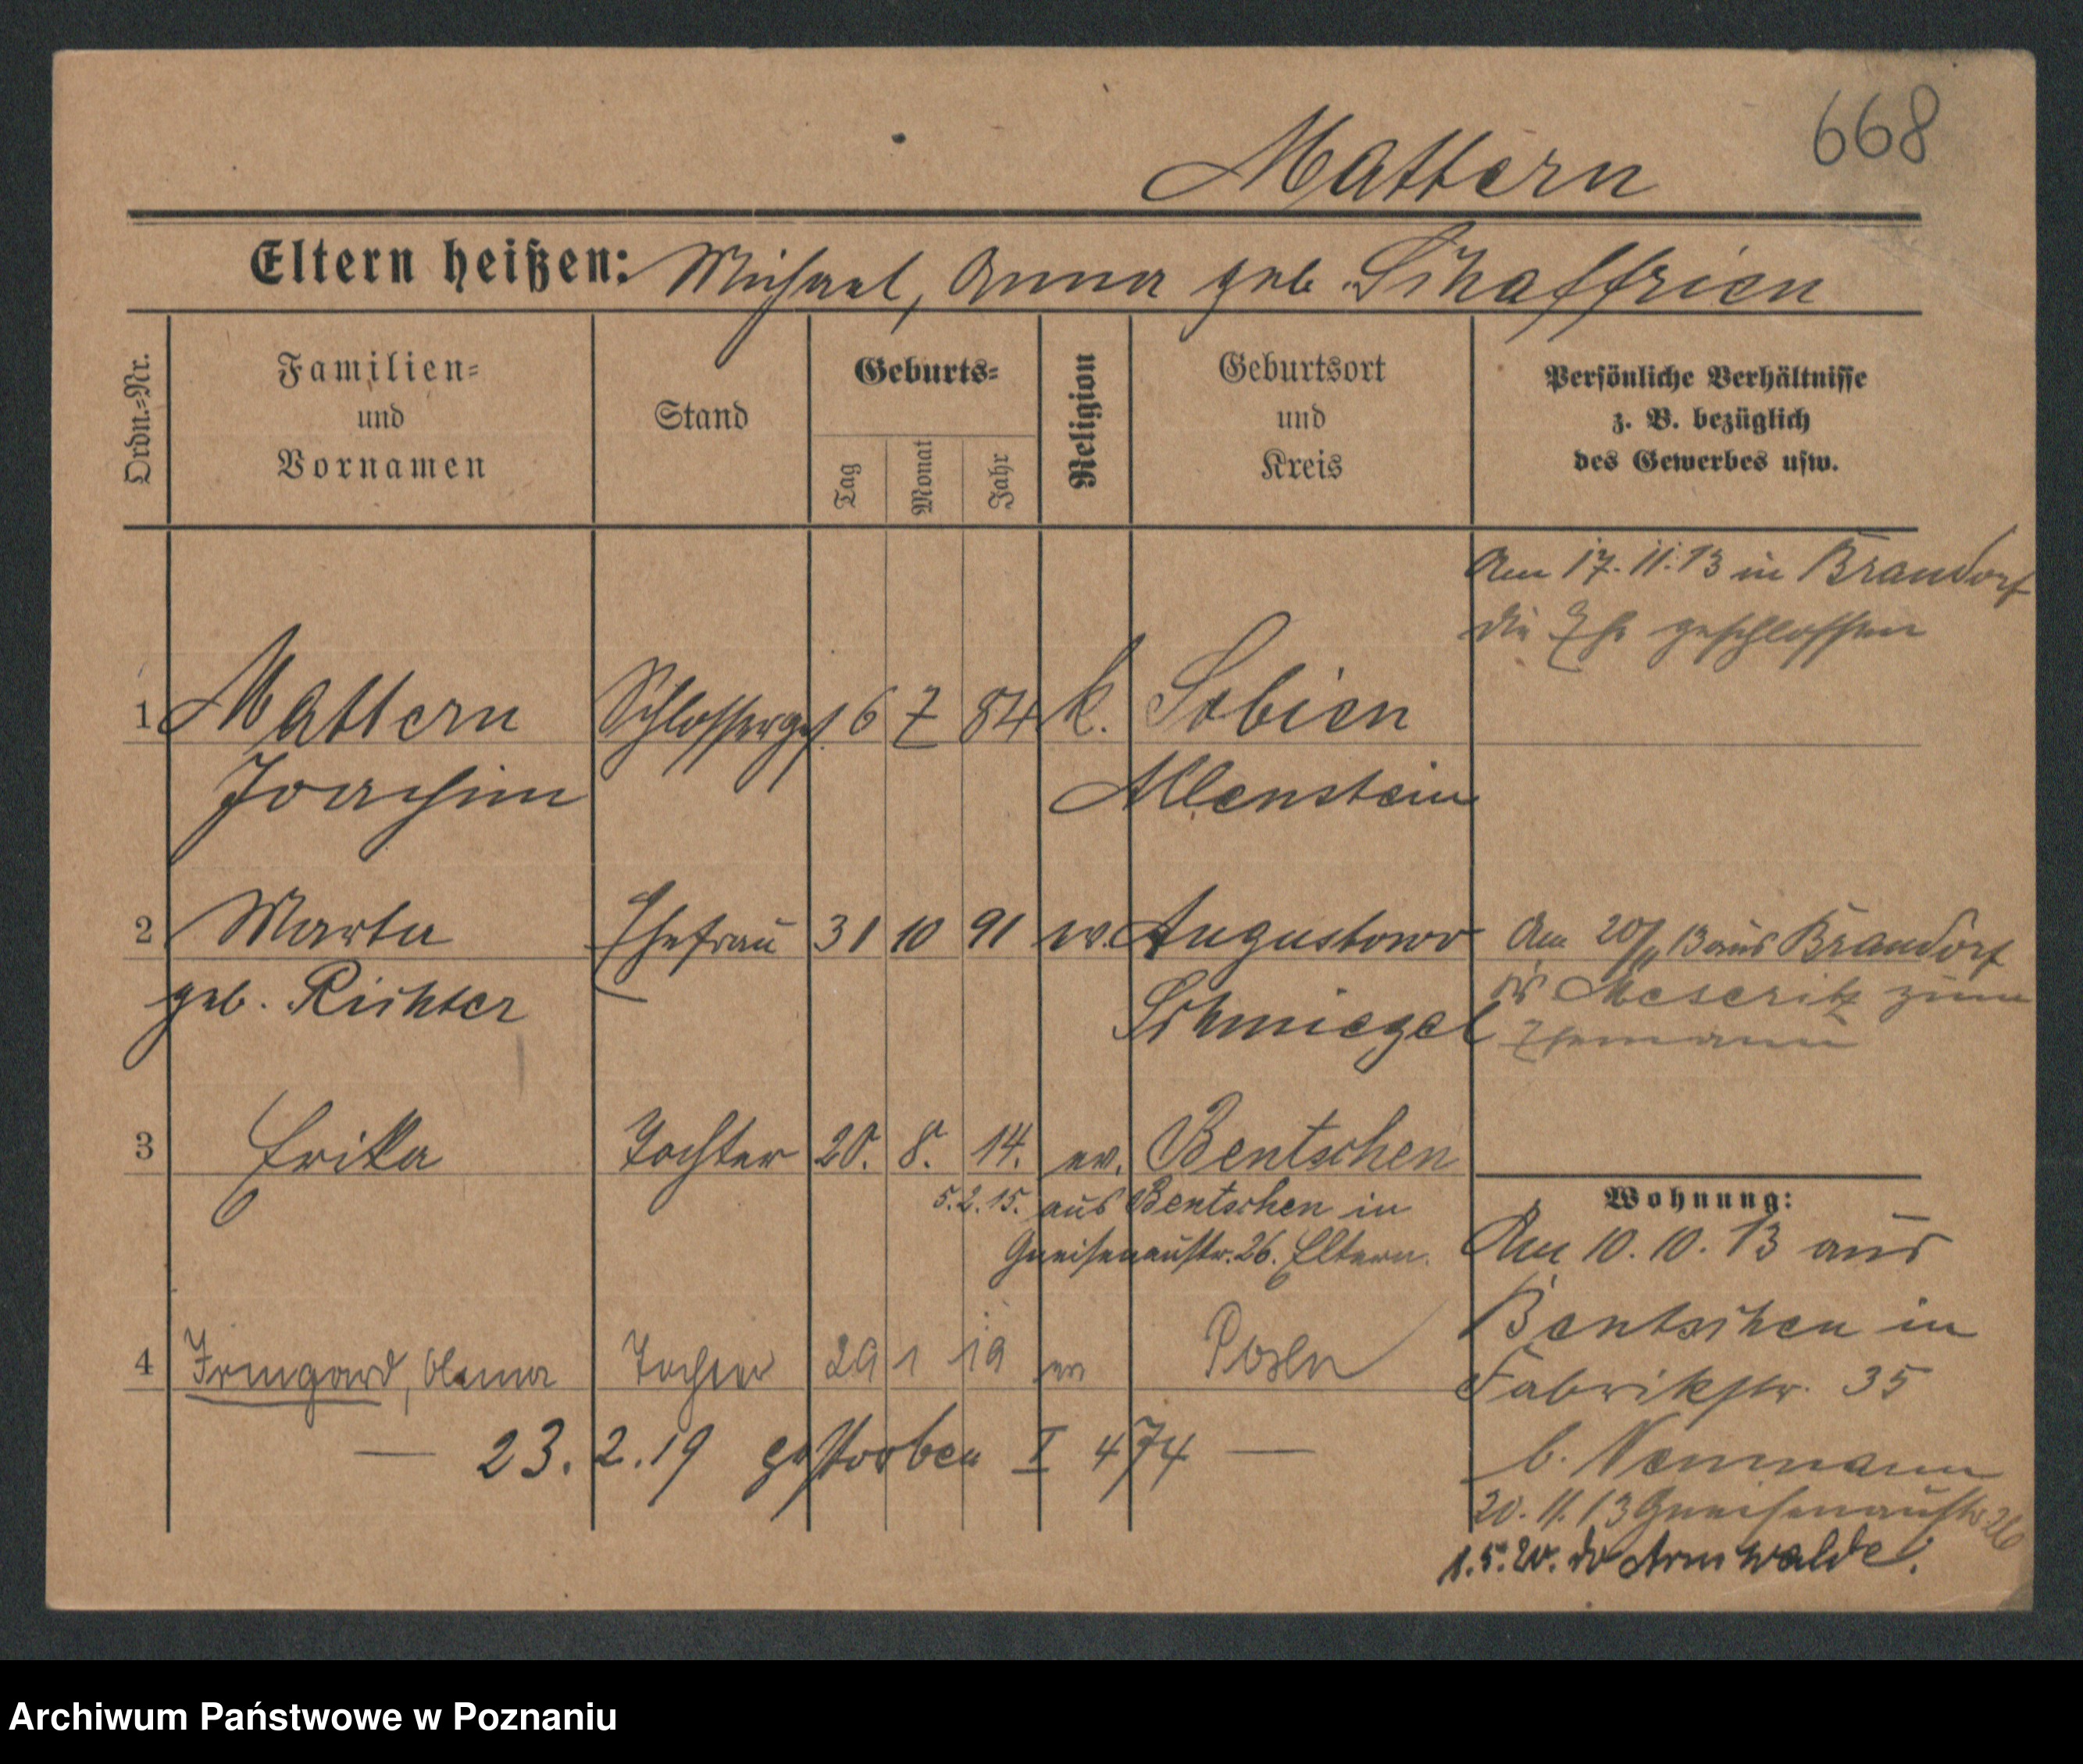 668
Mattern
Eltern heißen: Michael, Anna geb. Schaffrien
Ordn.-Nr.
Familien-
und
Vornamen
Stand
Geburts-
Tag
Monat
Jahr
Religion
Geburtsort
und
Kreis
Persönliche Verhältnisse
z. B. bezüglich
des Gewerbes usw.
Am 17.11.13 in Brandorf
die Ehe geschlossen
1 Mattern Schlosserges. 6 7 84 k. Sobien
Joachim Allenstein
2 Marta Ehefrau 31 10 91 ev. Augustowo
geb. Richter Schmiegel
Am 20/11 13 aus Brandorf
Kr Meseritz zum
Ehemann
3 Erika Tochter 20. 8. 14. ev. Bentschen
5.2.15. aus Bentschen in
Gneisenaustr. 26. Eltern.
4 Irmgard, Tochter 29 1 19 ev Posen
— 23.2.19 gestorben I 474 —
Wohnung:
Am 10.10.13 aus
Bentschen in
Fabrikstr. 35
b. Neumann
20.11.13 Gneisenaustr 26
1.5.20. Arnswalde.
Archiwum Państwowe w Poznaniu